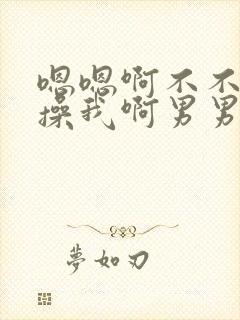 嗯嗯啊不不
操我啊男男
梦如刀